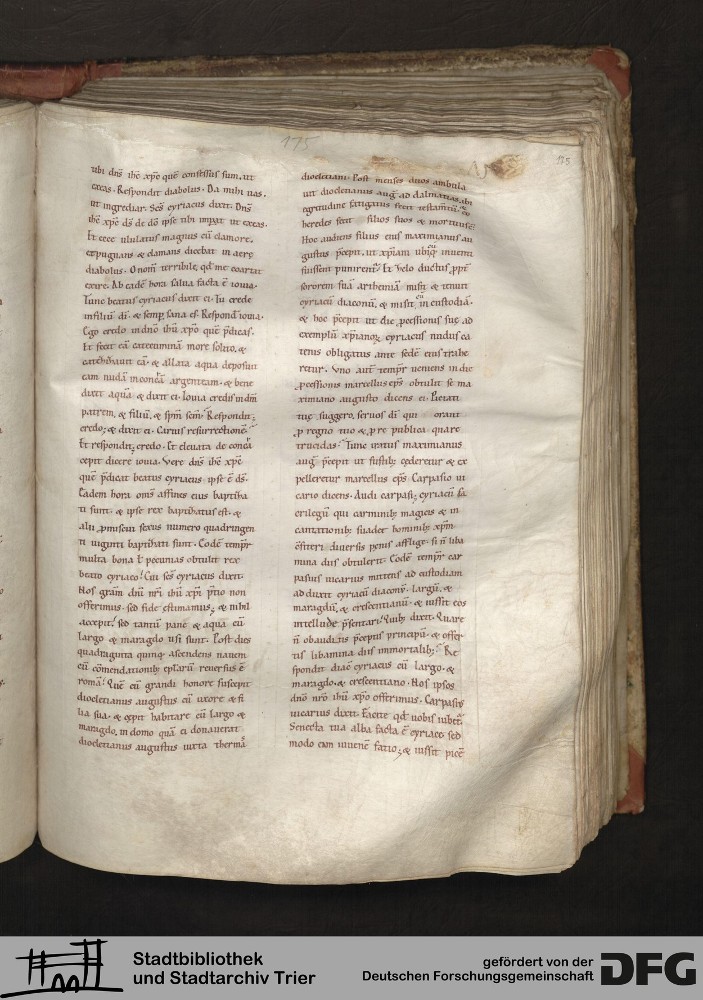 175
135
ubi dns ihc xpc quē confessus sum, ut
exeas. Respondit diabolus. Da mihi uas.
ut ingrediar. Scs cyriacus dixit. Dns
ihc xpc ds de dō ipse tibi impat ut exeas.
Et ecce ululatus magnus cū clamore.
et pugnans & clamans dicebat in aere
diabolus. O nom̄ terribile qd me coartat
exire. Ab eadē hora salua facta ē iouia.
Tunc beatus cyriacus dixit ei. Tu crede
in filiū di. & semp sana es. Respond iouia.
Ego credo in dnō ihū xpō quē p̄dicas.
Et fecit eā catecuminā more solito, &
catechizauit eā. & allata aqua deposuit
eam nudā in concā argenteam. & bene
dixit aquā & dixit ei. Iouia credis in dm̄
patrem, & filiū, & spm̄ scm̄? Respondit;
credo; & dixit ei. Carnis resurrectionē?
Et respondit; credo. Et eleuata de concā
cepit dicere iouia. Vere dns ihc xpc
quē p̄dicat beatus cyriacus ipse ē ds.
Eadem hora oms affines eius baptiza
ti sunt. & ipse rex baptizatus est. &
alii pmiscui sexus numero quadringen
ti uiginti baptizati sunt. Eodē tempr
multa bona l pecunias obtulit rex
beato cyriaco. Cui scs cyriacus dixit.
Nos gram̄ dni nri ihū xpi p̄tio non
offerimus. sed fide estimamus; & nihil
accepit. sed tantū pane & aqua cū
largo & maragdo usi sunt. Post dies
quadraginta quinq; ascendens nauem
cū cōmendationib; eptarū reuersus ē
romā. Quē cū grandi honore suscepit
diocletianus augustus cū uxore & fi
lia sua. & cepit habitare cū largo &
maragdo. in domo quā ei donauerat
diocletianus augustus iuxta thermā
diocletiani. Post menses duos ambula
uit diocletianus aug ad dalmatias. ibi
egritudine fatigatus fecit testamtū. &
heredes fecit filios suos & mortuus ē.
Hoc audiens filius eius maximianus au
gustus p̄cepit. ut xpianī ubiq; inuenti
fuissent punirent. Et zelo ductus ppt
sororem suā arthemiā misit & tenuit
cyriacū diaconū, & misit eū in custodiā.
& hoc p̄cepit ut die pcessionis sue ad
exemplū xpianoȝ cyriacus nudus ca
tenis obligatus ante sedē eius trahe
retur. Uno aut tempr ueniens in die
pcessionis marcellus eps obtulit se ma
ximiano augusto dicens ei. Pietati
tue suggero, seruos di qui orant
p regno tuo & p re publica quare
trucidas? Tunc iratus maximianus
aug p̄cepit ut fustib; cederetur & ex
pelleretur marcellus eps Carpasio ui
cario dicens. Audi carpasi; cyriacū sa
crilegū qui carminib; magicis & in
cantationib; suadet hominib; xpm̄
cfiteri. diuersis penis afflige. si n̄ liba
mina diis obtulerit. Eodē tempr car
pasius uicarius mittens ad custodiam
adduxit cyriacū diaconū. largū, &
maragdū, & crescentianū. & iussit eos
in tellude p̄sentari. Quib; dixit. Quare
n̄ obauditis p̄ceptis principū. & offer
tis libamina diis immortalib;? Re
spondit diac̄ cyriacus cū largo. &
maragdo. & crescentiano. Nos ipsos
dnō nrō ihū xpō offerimus. Carpasius
uicarius dixit. Facite qd uobis iubet.
Senecta tua alba facta ē cyriace. sed
modo eam iuuenē fatio; & iussit picē
Stadtbibliothek
und Stadtarchiv Trier
gefördert von der
Deutschen Forschungsgemeinschaft
DFG